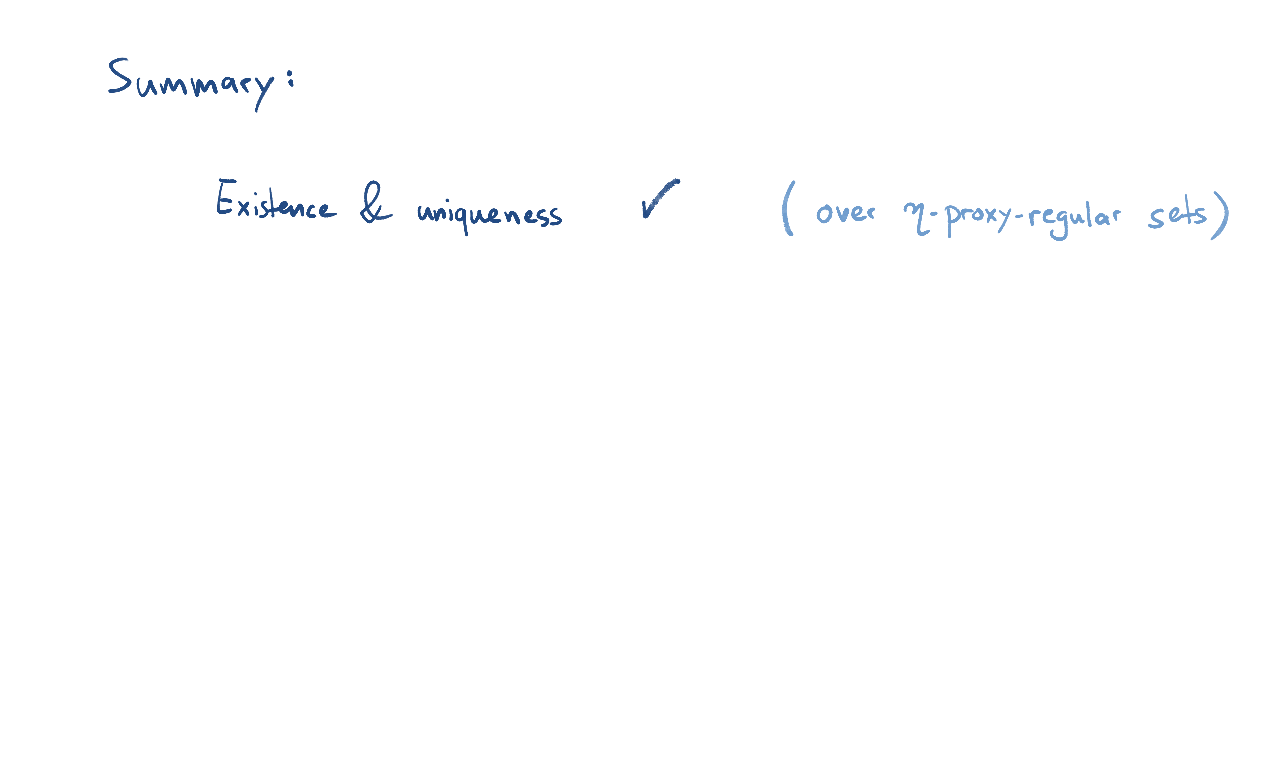 Summary:
Existence & uniqueness ✓ (over η-proxy-regular sets)